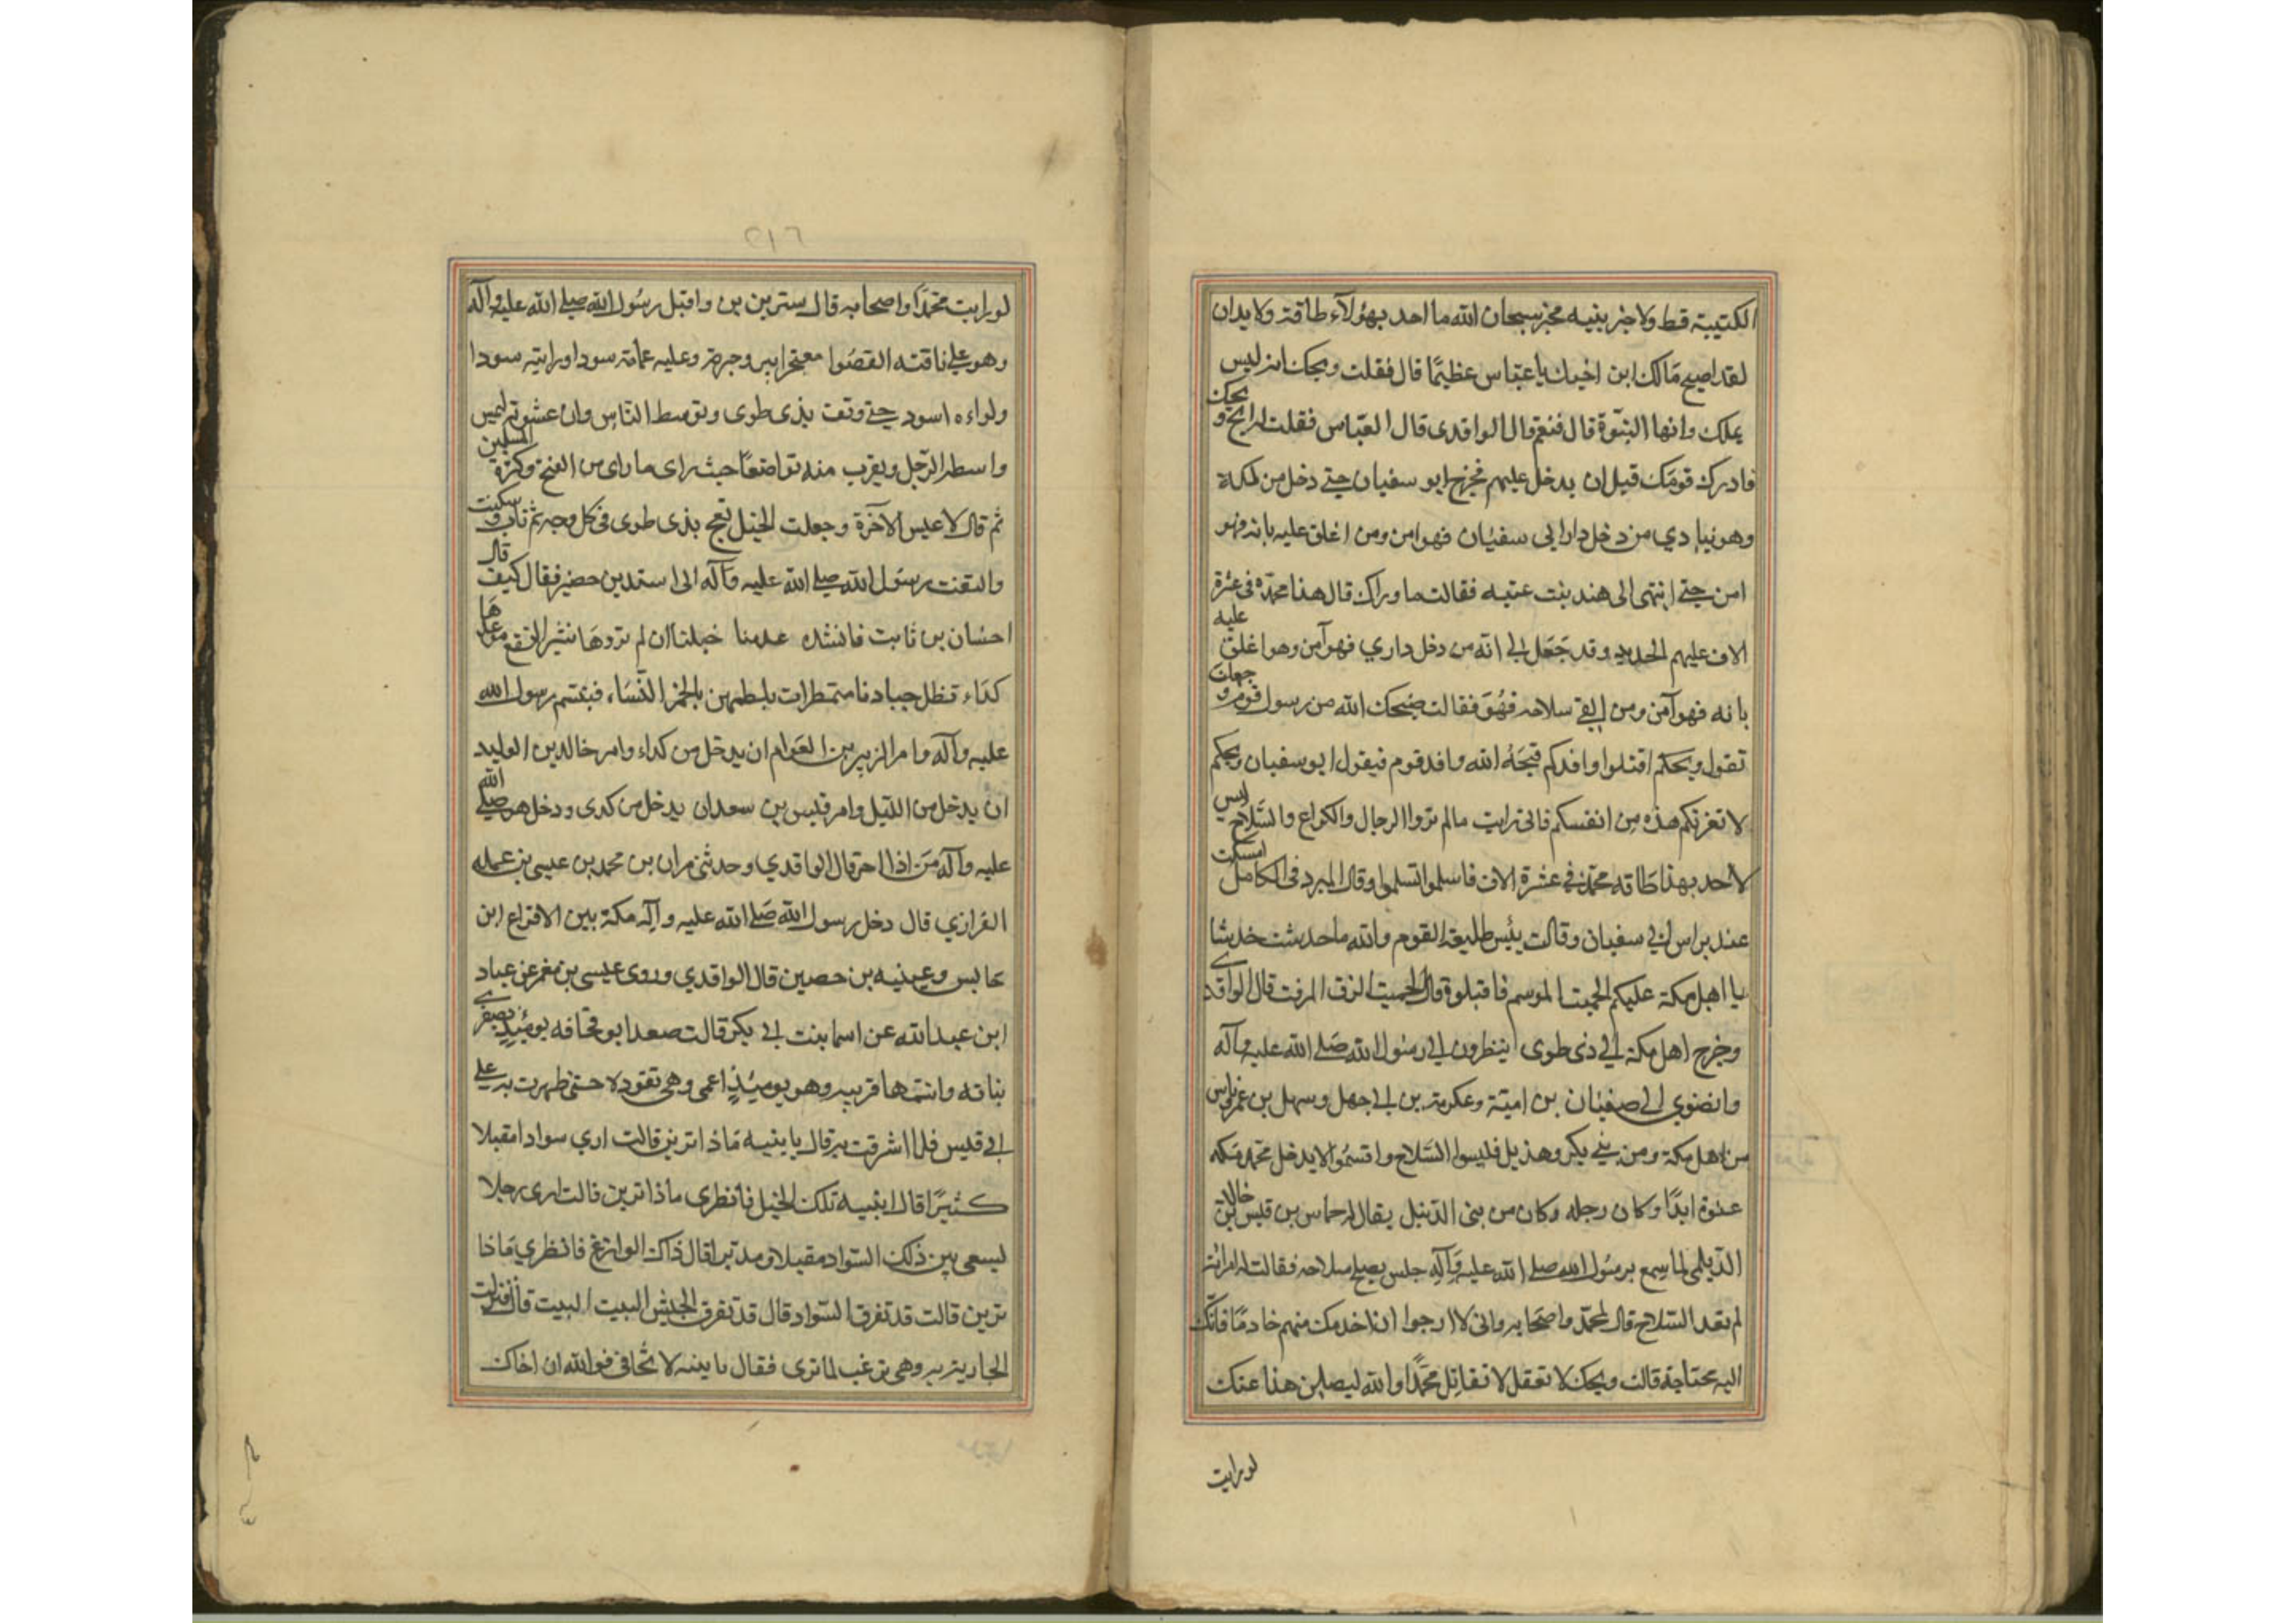 الكتيبة قط ولا خبر بنيه مخبر سبحان الله ما احد بهؤلآء طاقة ولا يدان
لقد اصبح مالك ابن اخيك يا عباس عظيمًا قال فقلت ويحك انه ليس
بملك وانها النبوة قال فنعم قال الواقدي قال العباس فقلت له انج ويحك
فادرك قومك قبل ان يدخل عليهم فخرج ابو سفيان حتى دخل من لمكة
وهو ينادي من دخل دار ابي سفيان فهو امن ومن اغلق عليه بابه فهو
امن حتى انتهى الى هند بنت عتبه فقالت ما وراك قال هذا محمد في عشرة
الاف عليهم الحديد وقد جعل لي انه من دخل داري فهو آمن وهو اغلق عليه
بابه فهو آمن ومن القى سلاحه فهو فقالت قبحك الله من رسول قوم وجعلت
تقول ويحكم اقتلوا وافدكم قبحه الله وافد قوم فيقول ابو سفيان ويحكم
لا تغرنكم هذه من انفسكم فانى رايت مالم تروا الرجال والكراع والسلاح ليس
لاحد بهذا طاقه محمد في عشرة الاف فاسلموا تسلموا وقال المبرد فى الكامل امسكت
عند براس ابي سفيان وقالت بئس طليعة القوم والله ما خدشت خدشا
يا اهل مكة عليكم الحميت الدسم فاقتلوه قال الحميت الزق المزفت قال الواقدي
وخرج اهل مكة الي ذى طوى ينظرون الي رسول الله صلى الله عليه وآله
وانضوي الي صفيان بن امية وعكرمة بن ابي جهل وسهل بن عمرو ناس
من اهل مكة ومن بني بكر وهذيل فلبسوا السلاح واقسموا لا يدخل محمد مكه
عنوة ابدًا وكان رجله وكان من بنى الدئيل يقال له حماس بن قيس بن خالد
الديلمي لما سمع برسول الله صلى الله عليه وآله جلس يصلح سلاحه فقالت له امراته
لم تعد السلاح قال لمحمد واصحابه وانى لا ارجوا ان اخدمك منهم خادمًا فانك
اليه محتاجة قالت ويحك لا تفعل لا تقاتل محمدًا والله ليضلن هذا عنك
لو رايت
٢١٦
لو رايت محمدًا واصحابه قال سترين بن واقبل رسول الله صلى الله عليه وآله
وهو على ناقته القصوا معتجرا ببرد حبره وعليه عمامة سودا ورايته سودا
ولواءه اسود حتى وقف بذى طوى وتوسط الناس وان عشوته ليمس
واسطه الرحل ويقرب منه تواضعًا حيث راى ما راى من الفتح وكثرة المسلمين
ثم قال لا عيس الآخرة وجعلت الخيل تعج بذى طوى فى كل وجه ثم ثابت وسكنت
والتفت رسول الله صلى الله عليه وآله الى اسيد بن حضير فقال كيف قال
احسان بن ثابت فانشده عدمنا خيلنا ان لم تروها تثير النقع موعدها
كداء تظل جيادنا متمطرات يلطمهن بالخمر النساء فتبسم رسول الله
عليه وآله وامر الزبير بن العوام ان يدخل من كداء وامر خالد بن الوليد
ان يدخل من الليل وامر قيس بن سعد ان يدخل من كدى ودخل هو صلى الله
عليه وآله من اذا اخر قال الواقدي وحدثنى مران بن محمد بن عيسى بن عمله
الفرازي قال دخل رسول الله صلى الله عليه وآله مكة بين الاقراع ابن
حابس وعينيه بن حصين قال الواقدي وروى عيسى بن معمر عن عباد
ابن عبد الله عن اسما بنت ابي بكر قالت صعد ابو قحافه يومئذ بصغرى
بناته وانتها قريبه وهو يومئذ اعمى وهى تقوده حتى ظهرت به على
ابي قبيس فلما اشرقت به قال يا بنيه ماذا ترين قالت ارى سوادا مقبلا
كثيرًا قال ابنيه تلك الخيل فانظرى ماذا ترين قالت ارى رجلا
ليسعى بين ذلك السواد مقبلا ومدبرا قال ذاك الوازع فانظري ماذا
ترين قالت قد تفرق السواد قال قد تفرق الجيش البيت البيت قال فنزلت
الجارية به وهى ترغب لما ترى فقال يا بنيه لا تخافى فوالله ان اخاك